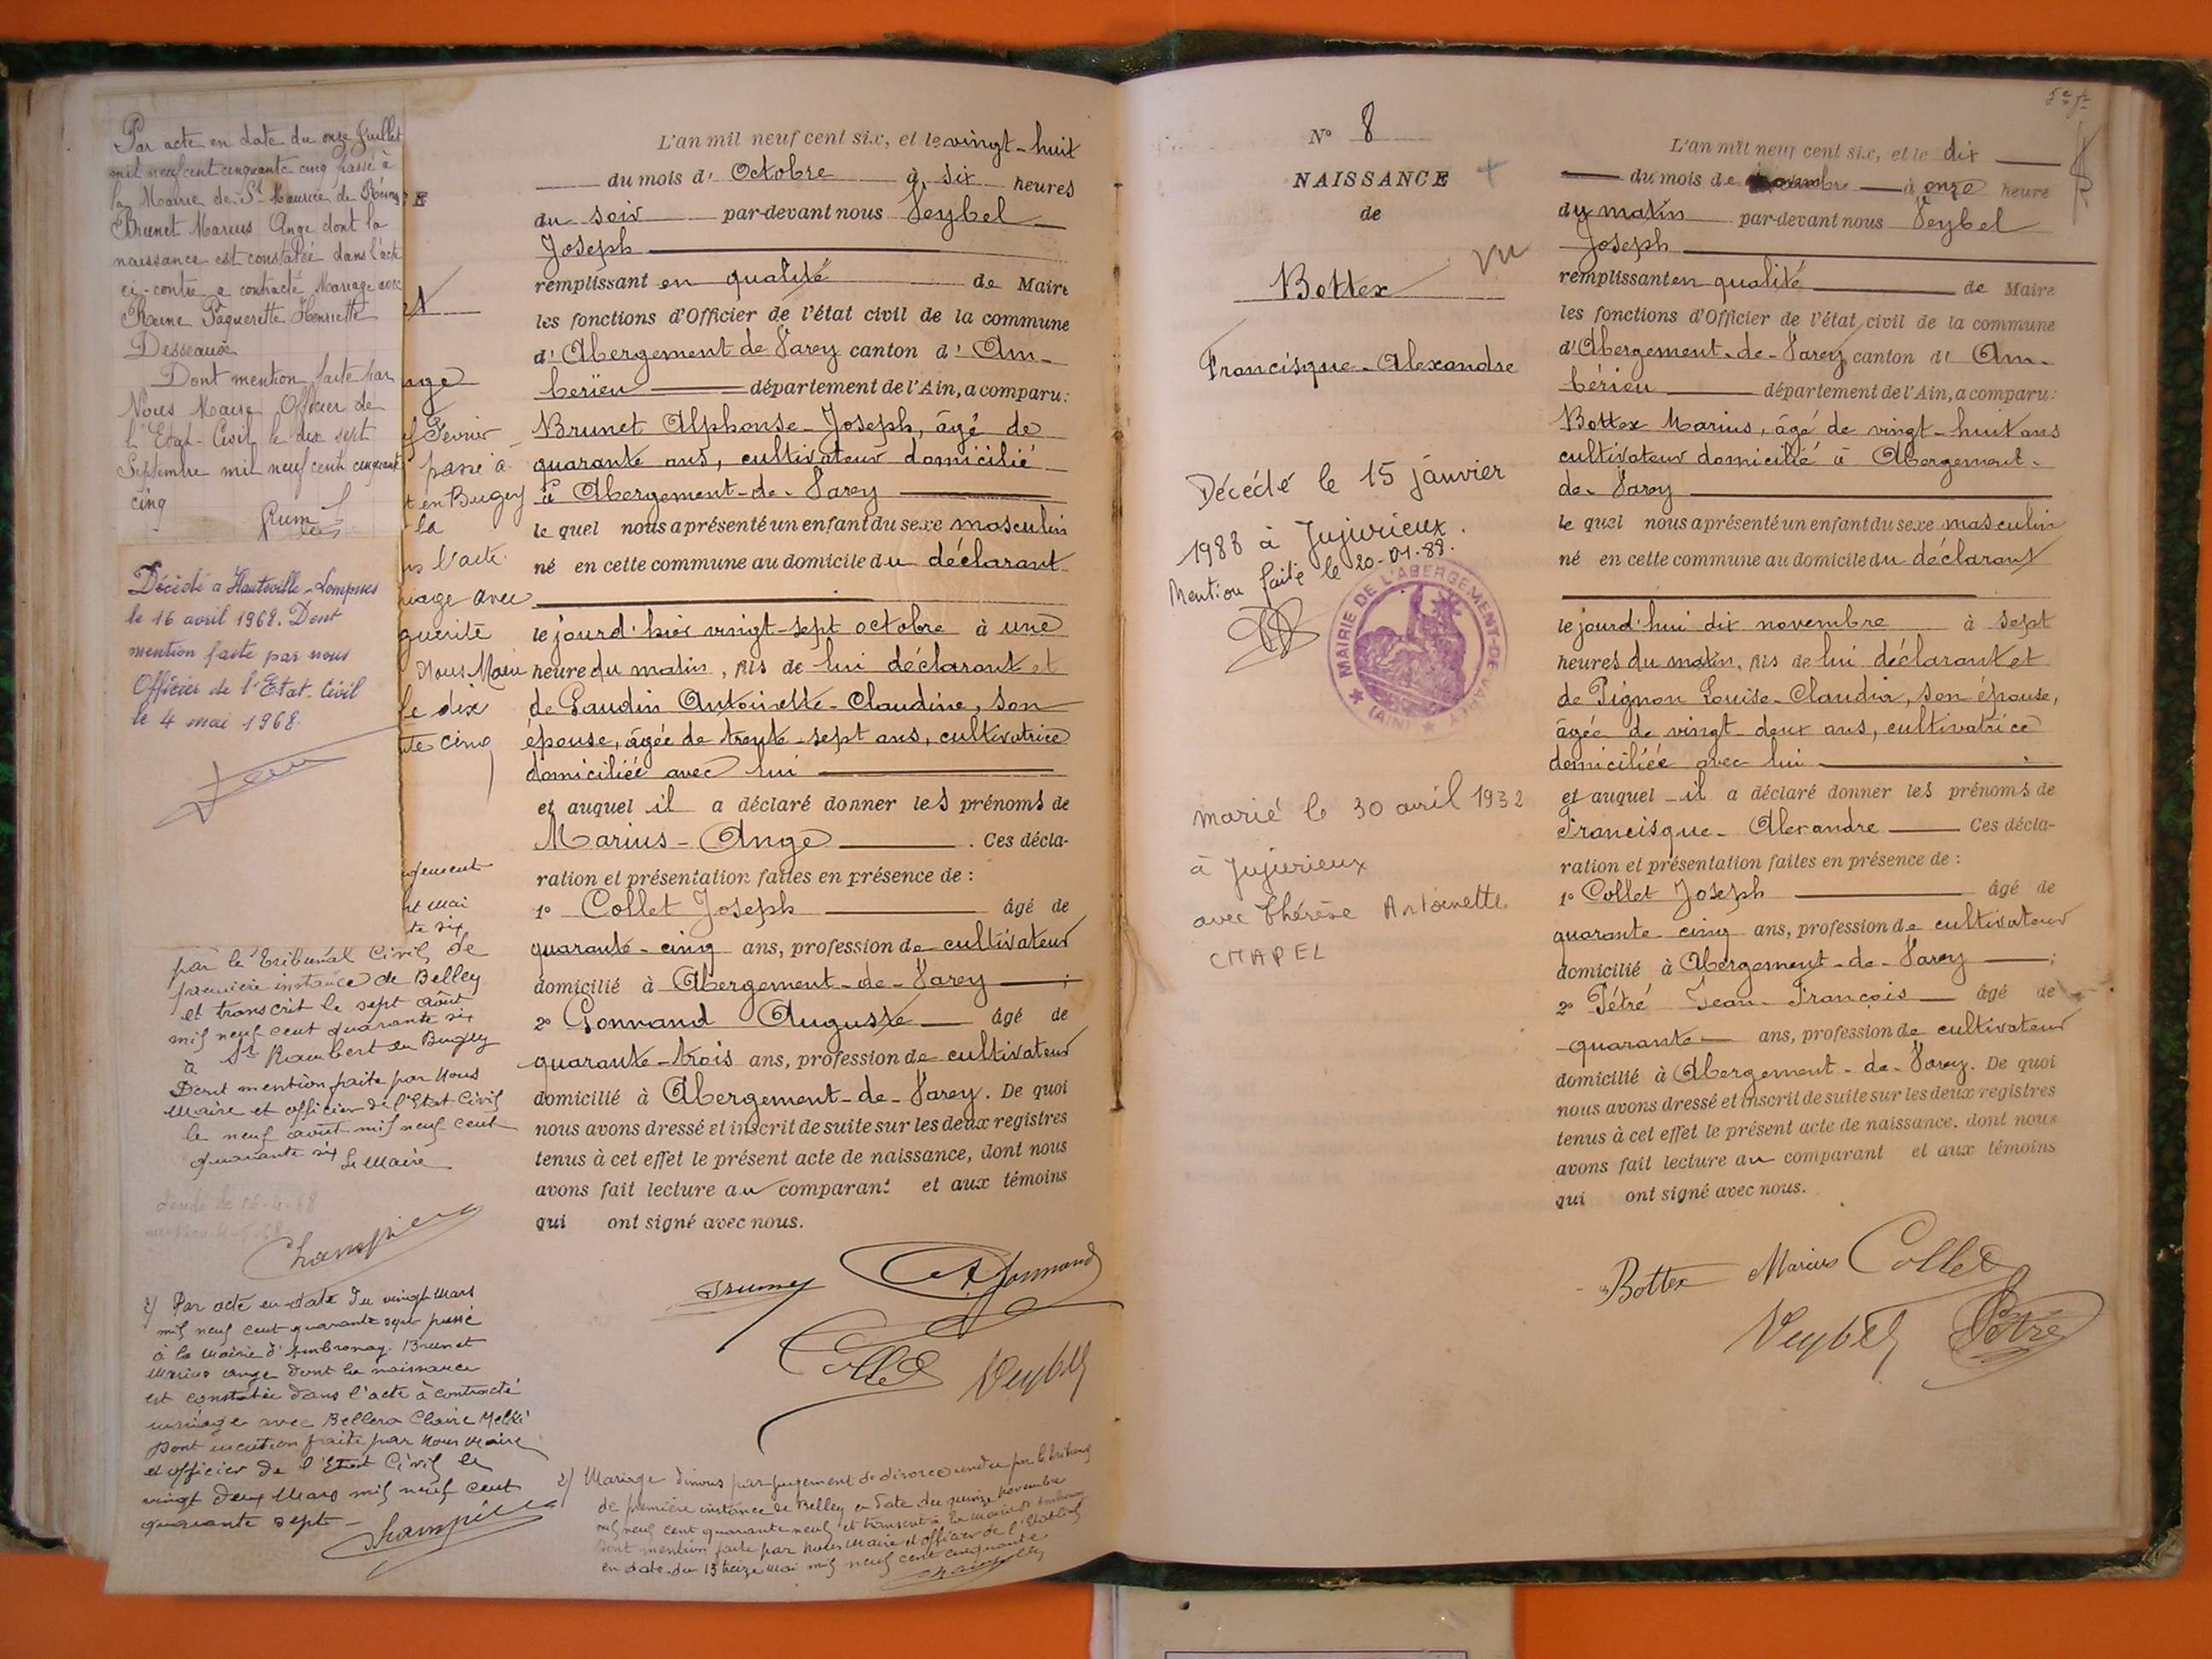 Par acte en date du onze Juillet
mil neuf cent cinquante cinq passé à
la Mairie de St Maurice de
Brunet Marius Ange dont la
naissance est constatée dans l'acte
ci-contre a contracté Mariage avec
Reine Paquerette Henriette
Desseaux
Dont mention faite par
Nous Maire Officier de
l'Etat-Civil le dix sept
Septembre mil neuf cent cinquante
cinq
Décédé à Hauteville-Lompnes
le 16 avril 1968. Dont
mention faite par nous
Officier de l'Etat-Civil
le 4 mai 1968.
E
et
nge
Février
passé à
t en Bugey
la
l'acte
riage avec
guerite
Nous Maire
le dix
te cinq
gement
et mai
te six
par le tribunal Civil de
première instance de Belley
et transcrit le sept août
mil neuf cent quarante six
à St Rambert en Bugey
Dont mention faite par Nous
Maire et officier de l'Etat Civil
le neuf août mil neuf cent
quarante six Le Maire
Champier
2) Par acte en date du vingt Mars
mil neuf cent quarante sept passé
à la Mairie d'Ambronay. Brunet
Marius ange dont la naissance
est constatée dans l'acte à contracté
mariage avec Bellera Claire
Dont mention faite par Nous Maire
et officier de l'Etat Civil le
vingt deux Mars mil neuf cent
quarante sept -
Champier
L'an mil neuf cent six, et le vingt-huit
du mois d' Octobre à six heures
du soir par-devant nous Veybel
Joseph
remplissant en qualité de Maire
les fonctions d'Officier de l'état civil de la commune
d' Abergement de Varey canton d' Am-
bérieu département de l'Ain, a comparu:
Brunet Alphonse-Joseph, âgé de
quarante ans, cultivateur domicilié
à Abergement-de-Varey
le quel nous a présenté un enfant du sexe masculin
né en cette commune au domicile du déclarant
le jourd'hier vingt-sept octobre à une
heure du matin, fils de lui déclarant et
de Gaudin Antoinette-Claudine, son
épouse, âgée de trente-sept ans, cultivatrice
domiciliée avec lui
et auquel il a déclaré donner les prénoms de
Marius-Ange. Ces décla-
ration et présentation faites en présence de :
1° Collet Joseph âgé de
quarante-cinq ans, profession de cultivateur
domicilié à Abergement-de-Varey ;
2° Gonnand Auguste âgé de
quarante-trois ans, profession de cultivateur
domicilié à Abergement-de-Varey. De quoi
nous avons dressé et inscrit de suite sur les deux registres
tenus à cet effet le présent acte de naissance, dont nous
avons fait lecture au comparant et aux témoins
qui ont signé avec nous.
Brunet A. Gonnand
Collet Veybel
3) Mariage dissous par jugement de divorce rendu par le tribunal
de première instance de Belley en date du quinze novembre
mil neuf cent quarante neuf et transcrit à la Mairie
Dont mention faite par Nous Maire et officier de l'Etat Civil
en date du 13 treize Mai mil neuf cent cinquante.
N° 8
NAISSANCE
de
Bottex
vu
Francisque-Alexandre
Décédé le 15 janvier
1988 à Jujurieux.
Mention faite le 20-01-88.
MAIRIE DE L'ABERGEMENT-DE-VAREY
(AIN)
marié le 30 avril 1932
à Jujurieux
avec Thérèse Antoinette
CHAPEL
L'an mil neuf cent six, et le dix
du mois de novembre à onze heure
du matin par-devant nous Veybel
Joseph
remplissant en qualité de Maire
les fonctions d'Officier de l'état civil de la commune
d'Abergement-de-Varey canton d' Am-
bérieu département de l'Ain, a comparu:
Bottex Marius, âgé de vingt-huit ans
cultivateur domicilié à Abergement-
de-Varey
le quel nous a présenté un enfant du sexe masculin
né en cette commune au domicile du déclarant
le jourd'hui dix novembre à sept
heures du matin, fils de lui déclarant et
de Pignon Louise-Claudia, son épouse,
âgée de vingt-deux ans, cultivatrice
domiciliée avec lui
et auquel il a déclaré donner les prénoms de
Francisque-Alexandre Ces décla-
ration et présentation faites en présence de :
1° Collet Joseph âgé de
quarante-cinq ans, profession de cultivateur
domicilié à Abergement-de-Varey ;
2° Pétré Jean-François âgé de
quarante ans, profession de cultivateur
domicilié à Abergement-de-Varey. De quoi
nous avons dressé et inscrit de suite sur les deux registres
tenus à cet effet le présent acte de naissance, dont nous
avons fait lecture au comparant et aux témoins
qui ont signé avec nous.
Bottex Marius Collet
Veybel Pétré